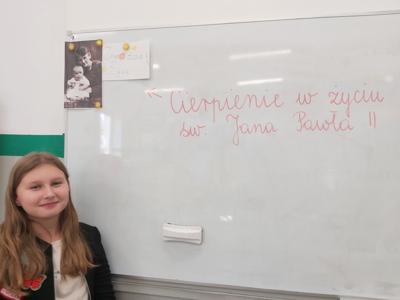 Cierpienie w życiu
św. Jana Pawła II